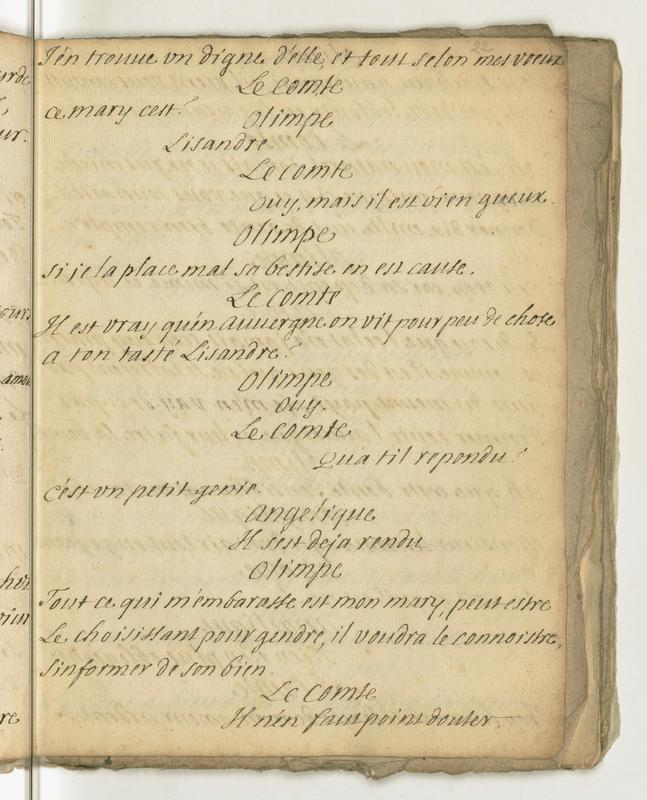 22
J'én trouue vn digne d'elle, et tout selon mes voeux
Le Comte
ce mary c'est?
Olimpe
Lisandre
Le Comte
Ouy, mais il est bien gueux.
Olimpe
si je la place mal sa bestise en est cause.
Le Comte
Il est vray qu'en Auuergne on vit pour peu de chose
a t'on tasté Lisandre?
Olimpe
Ouy.
Le Comte
Qu'a t'il repondu?
c'est vn petit genie.
Angelique
Il s'est deja rendu
Olimpe
Tout ce qui m'embarasse est mon mary, peut estre
Le choisissant pour gendre, il voudra le connoistre,
s'informer de son bien.
Le Comte
Il n'en faut point douter.